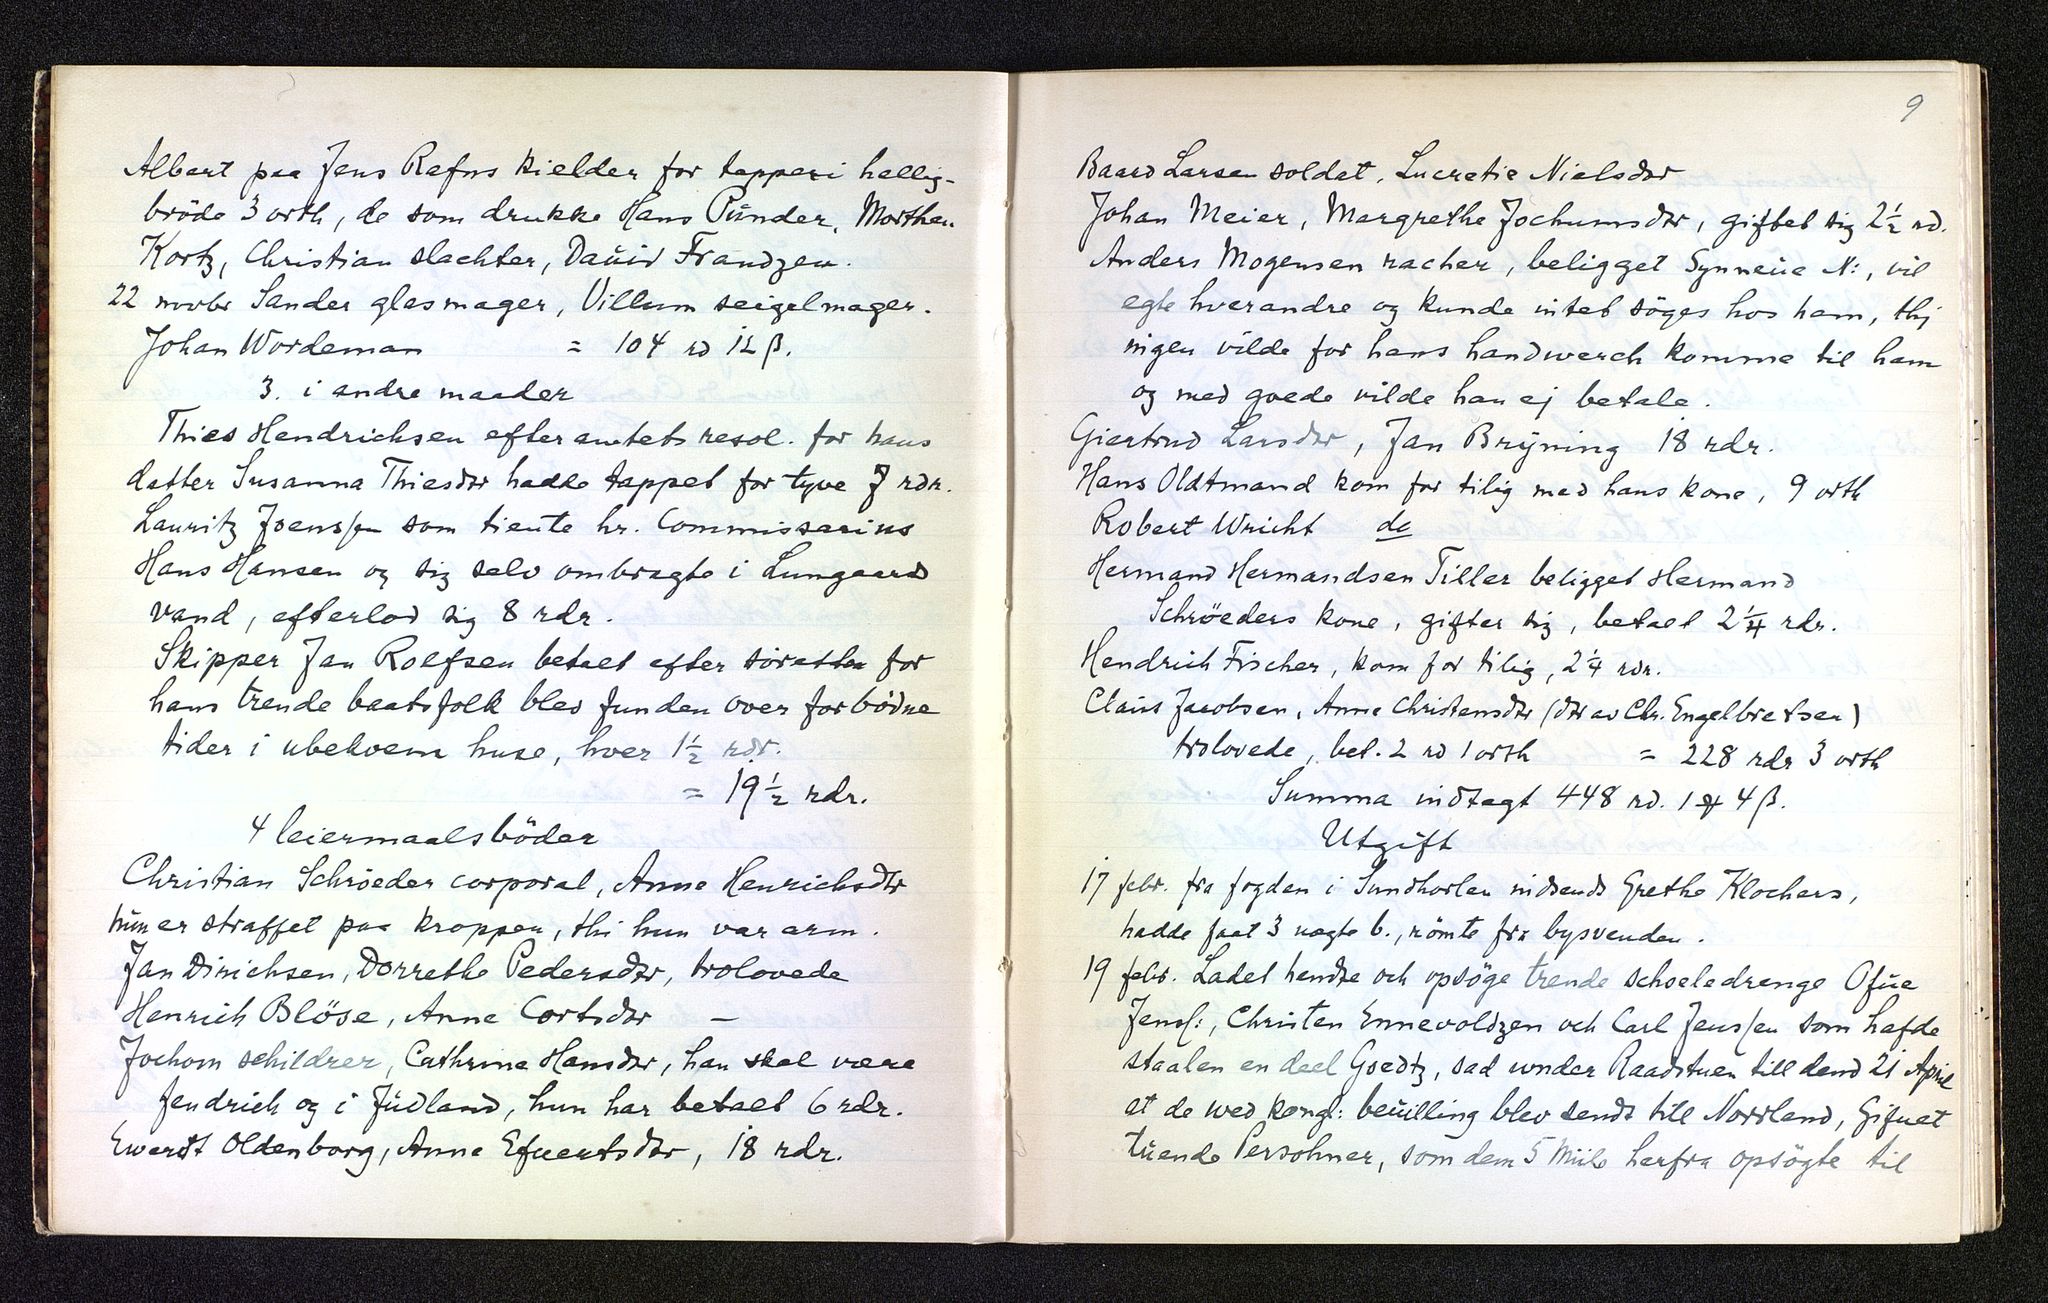 Albert paa Jens Refns kielder for tapperi hellig-
bröde 3 orth, de som drukke Hans Pünder, Morthen
Kortz, Christian slachter, Daüid Frandzen.
22 novbr Sander glasmager, Villum seigelmager.
Johan Wordeman = 104 rd 12 β.
3. i andre maader
Thies Hendrichsen efter amtets resol. for hans
datter Susanna Thiesdtr hadde tappet for tyve 7 rdr.
Lauritz Joenssen som tiente hr. Commissarius
Hans Hansen og sig selv ombragte i Lungaard
vand, efterlod sig 8 rdr.
Skipper Jan Roefsen betalt efter söretten for
hans trende baatsfolk blev funden over forbödne
tider i ubekvem huse, hver 1½ rdr.
= 19½ rdr.
4 leiermaalsböder
Christian Schröeder corporal, Anne Henrichsdtr
hün er straffet paa kroppen, thi hun var arm.
Jan Dirichsen, Dorrethe Pedersdtr, trolovede
Henrich Blöse, Anne Cortsdtr —
Jochom schildrer, Cathrine Hansdtr, han skal være
fendrich og i Jüdland, hun har betalt 6 rdr.
Ewerdt Oldenborg, Anne Efuertsdtr, 18 rdr.
9
Baard Larsen soldat, Lucretie Nielsdtr
Johan Meier, Margrethe Jochumsdtr, giftet sig 2½ rd.
Anders Mogensen racher, beligget Synneüe N:, vil
egte hverandre og kunde intet söges hos ham, thj
ingen vilde for hans handwerch komme til ham
og med goede vilde han ej betale.
Giertrud Larsdtr, Jan Brÿning 18 rdr.
Hans Oldtmand kom for tilig med hans kone, 9 orth
Robert Wricht do
Hermand Hermandsen Tiller beligget Hermand
Schröeders kone, gifter sig, betalt 2¼ rdr.
Hendrich Fischer, kom for tilig, 2¼ rdr.
Claüs Jacobsen, Anne Christensdtr (dtr av Chr. Engelbretsen)
trolovede, bet. 2 rd 1 orth = 228 rdr 3 orth
Summa indtagt 448 rd. 1 ℔ 4 β.
Utgift
17 febr. fra fogden i Sundhorlen indsends Grethe Klochers,
hadde faat 3 uegte b., römte fra bysvenden.
19 febr. Ladet hendte och opsöge trende schoeledrenge Ofüe
Jenss:, Christen Ennevoldzen och Carl Jenssen som hafde
staalen en deel Goedtz, sad under Raadstuen till dend 21 April
at de wed kongl: beüilling blev sendt till Norrland, Gifuet
tüende Persohner, som dem 5 Miile herfra opsögte til